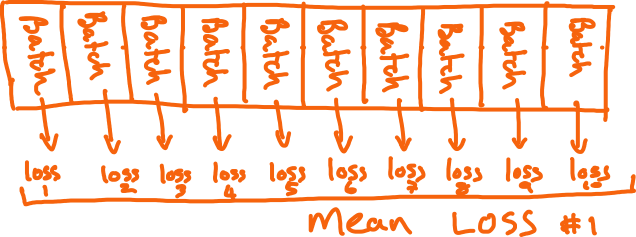 Batch Batch Batch Batch Batch Batch Batch Batch Batch Batch
loss 1 loss 2 loss 3 loss 4 loss 5 loss 6 loss 7 loss 8 loss 9 loss 10
Mean Loss #1